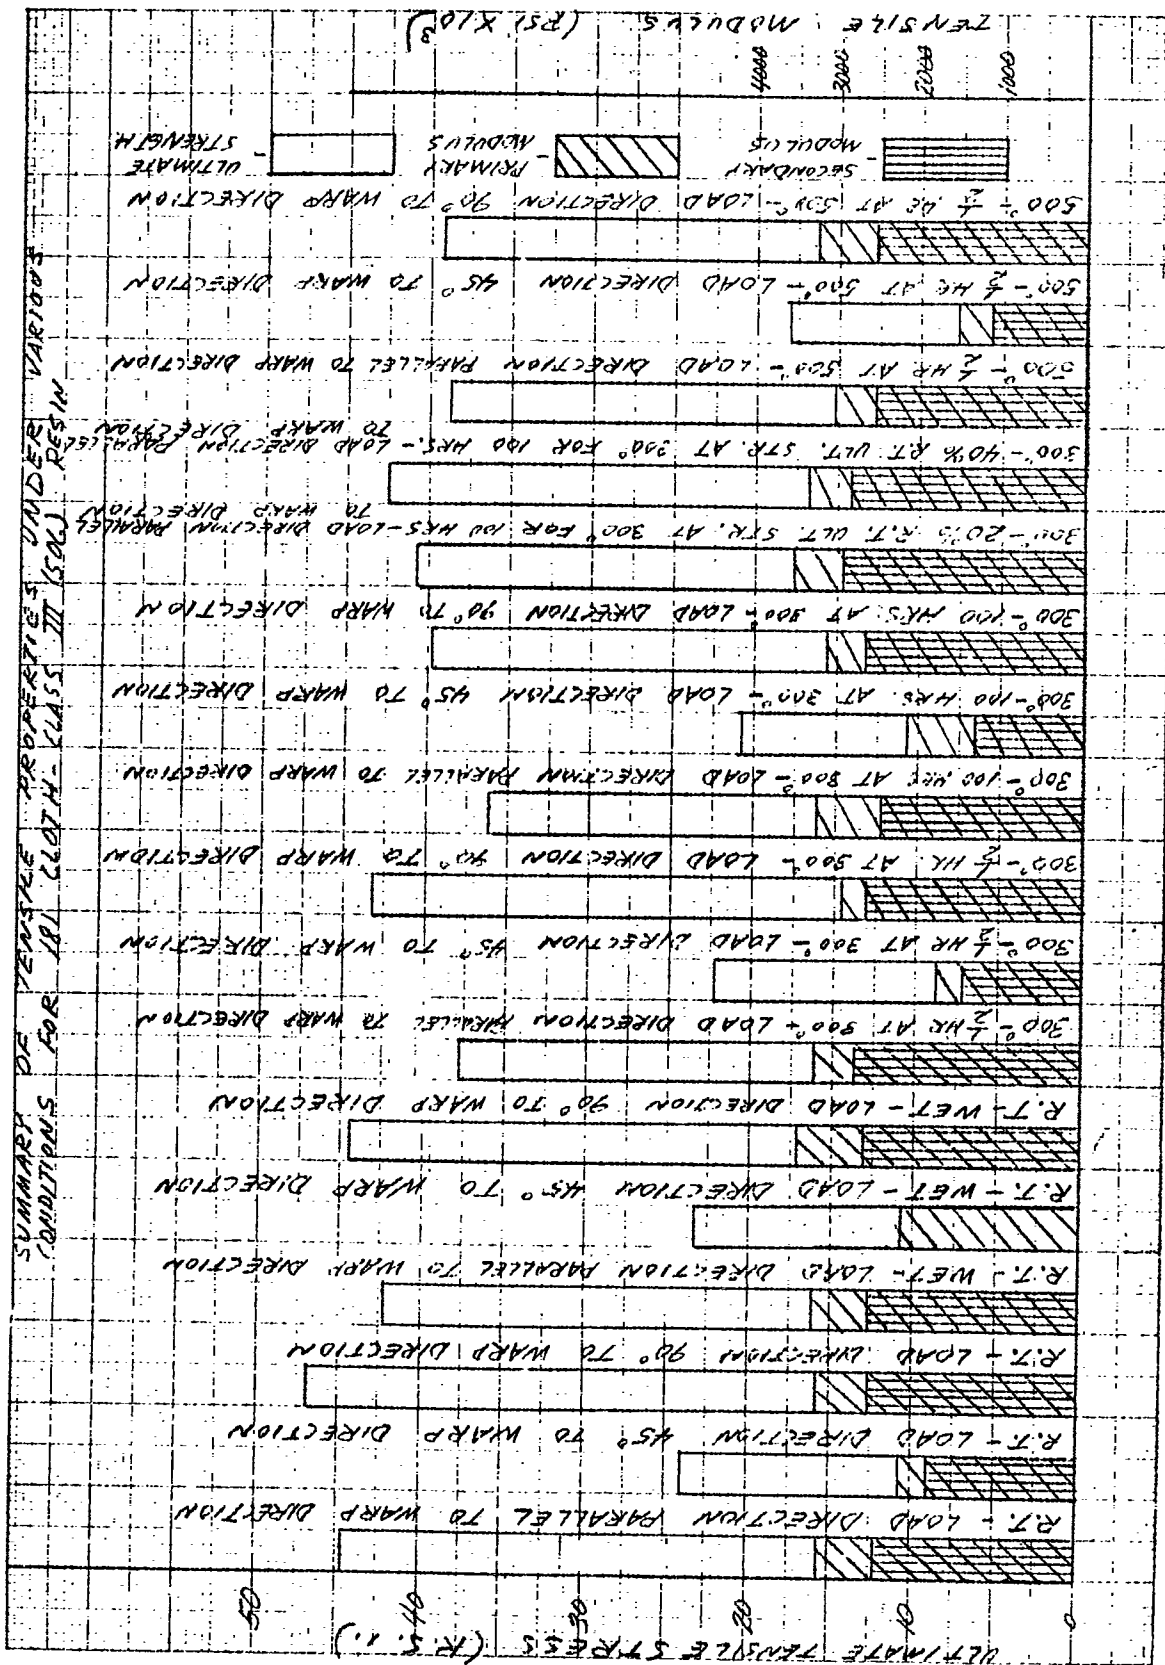 SUMMARY OF TENSILE PROPERTIES UNDER VARIOUS
CONDITIONS FOR 181 CLOTH - CLASS III (506) RESIN
ULTIMATE TENSILE STRESS (K.S.I.)
0 10 20 30 40 50
R.T. - LOAD DIRECTION PARALLEL TO WARP DIRECTION
R.T. - LOAD DIRECTION 45° TO WARP DIRECTION
R.T. - LOAD DIRECTION 90° TO WARP DIRECTION
R.T. - WET - LOAD DIRECTION PARALLEL TO WARP DIRECTION
R.T. - WET - LOAD DIRECTION 45° TO WARP DIRECTION
R.T. - WET - LOAD DIRECTION 90° TO WARP DIRECTION
300° - ½ HR AT 300° - LOAD DIRECTION PARALLEL TO WARP DIRECTION
300° - ½ HR AT 300° - LOAD DIRECTION 45° TO WARP DIRECTION
300° - ½ HR. AT 300° - LOAD DIRECTION 90° TO WARP DIRECTION
300° - 100 HRS AT 300° - LOAD DIRECTION PARALLEL TO WARP DIRECTION
300° - 100 HRS. AT 300° - LOAD DIRECTION 45° TO WARP DIRECTION
300° - 100 HRS. AT 300° - LOAD DIRECTION 90° TO WARP DIRECTION
300° - 20% R.T. ULT. STR. AT 300° FOR 100 HRS - LOAD DIRECTION PARALLEL
TO WARP DIRECTION
300° - 40% R.T. ULT. STR. AT 300° FOR 100 HRS. - LOAD DIRECTION PARALLEL
TO WARP DIRECTION
500° - ½ HR AT 500° - LOAD DIRECTION PARALLEL TO WARP DIRECTION
500° - ½ HR AT 500° - LOAD DIRECTION 45° TO WARP DIRECTION
500° - ½ HR. AT 500° - LOAD DIRECTION 90° TO WARP DIRECTION
SECONDARY
MODULUS -
PRIMARY
MODULUS -
ULTIMATE
STRENGTH -
1000 2000 3000 4000
TENSILE MODULUS (PSI X 10³)